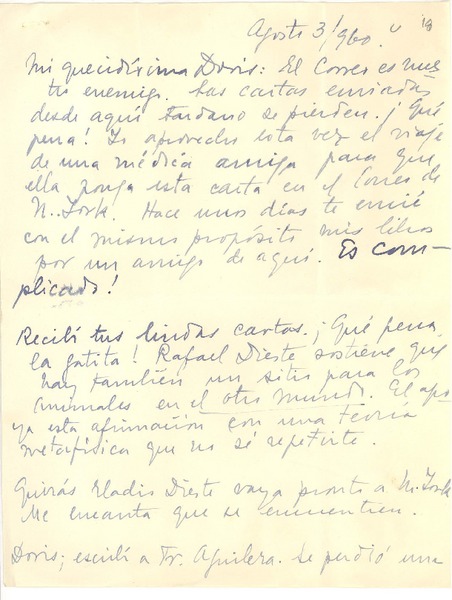 Agosto 3/960.
Mi queridísima Doris: El Correo es nues
tro enemigo. Las cartas enviadas
desde aquí tardan o se pierden. ¡Qué
pena! Yo aprovecho esta vez el viaje
de una médica amiga para que
ella ponga esta carta en el Correo de
N. York. Hace unos días te envié
con el mismo propósito mis libros
por un amigo de aquí. Es com-
plicado!
Recibí tus lindas cartas. ¡Qué pena
la gatita! Rafael Dieste sostiene que
hay también un sitio para los
animales en el otro mundo. El apo-
ya esta afirmación con una teoría
metafísica que no sé repetirte.
Quizás Eladio Dieste vaya pronto a N. York
Me encanta que se encuentren.
Doris; escribí a Fr. Aguilera. Se perdió una